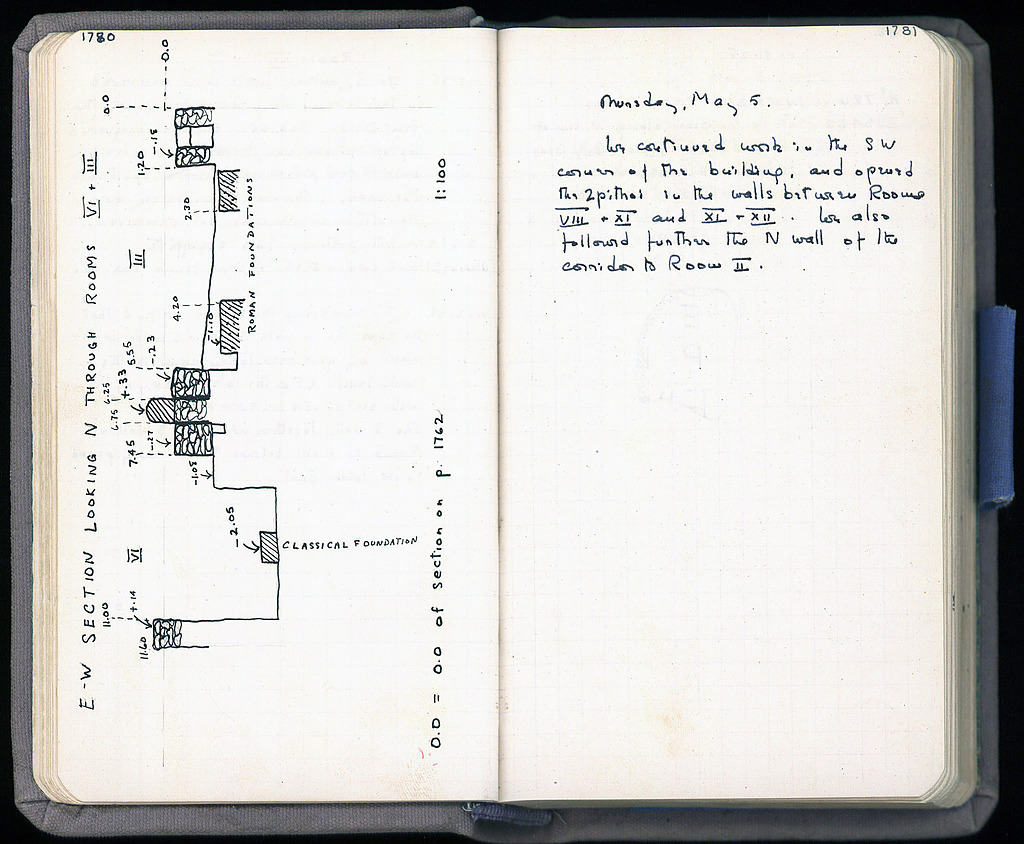 1780
E-W SECTION LOOKING N THROUGH ROOMS VI + III
0.0
0.0
-.18
1.20
III
2.30
4.20
-1.10
ROMAN FOUNDATIONS
5.55
-.23
6.25
+.33
6.75
-.27
7.45
-1.08
VI
-2.05
CLASSICAL FOUNDATION
11.00
+.14
11.60
0.0 = 0.0 of section on p. 1762
1:100
1781
Thursday, May 5.
We continued work in the SW
corner of the building, and opened
the 2 pithoi in the walls between Rooms
VIII + XI and XI + XII. We also
followed further the N wall of the
corridor to Room II.